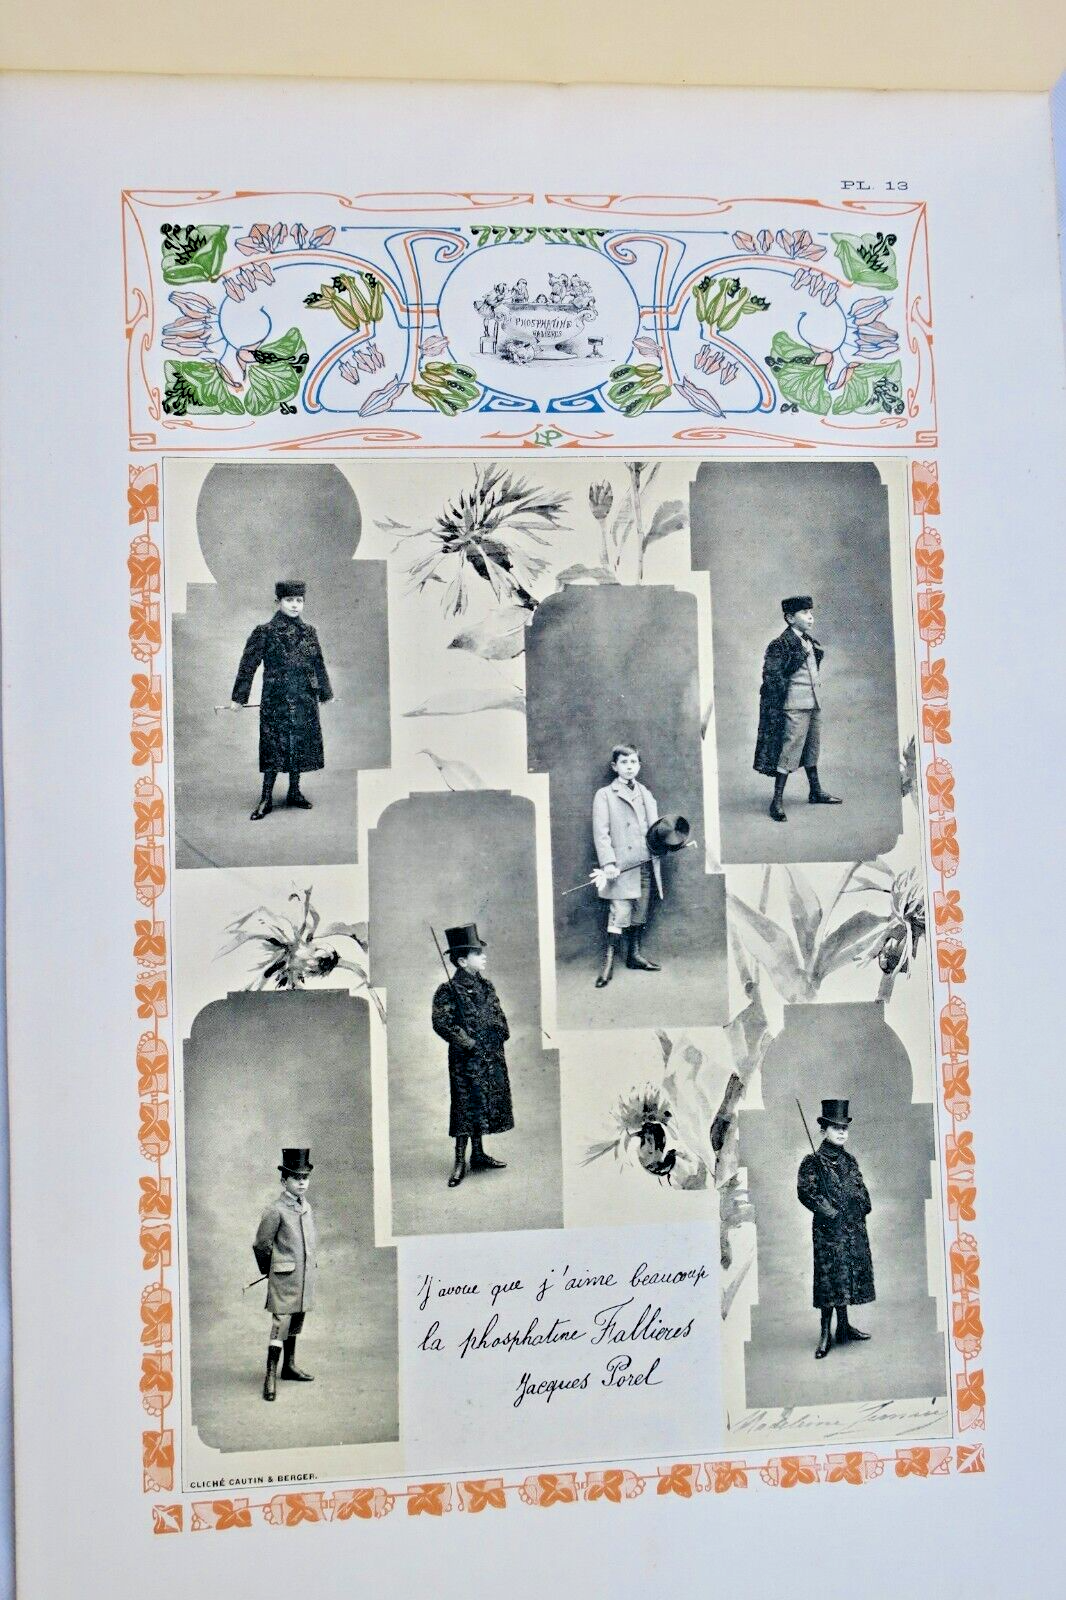 PL. 13
PHOSPHATINE
FALIÈRES
J'avoue que j'aime beaucoup
la phosphatine Fallières
Jacques Porel
Madeleine Lemaire
CLICHÉ CAUTIN & BERGER.